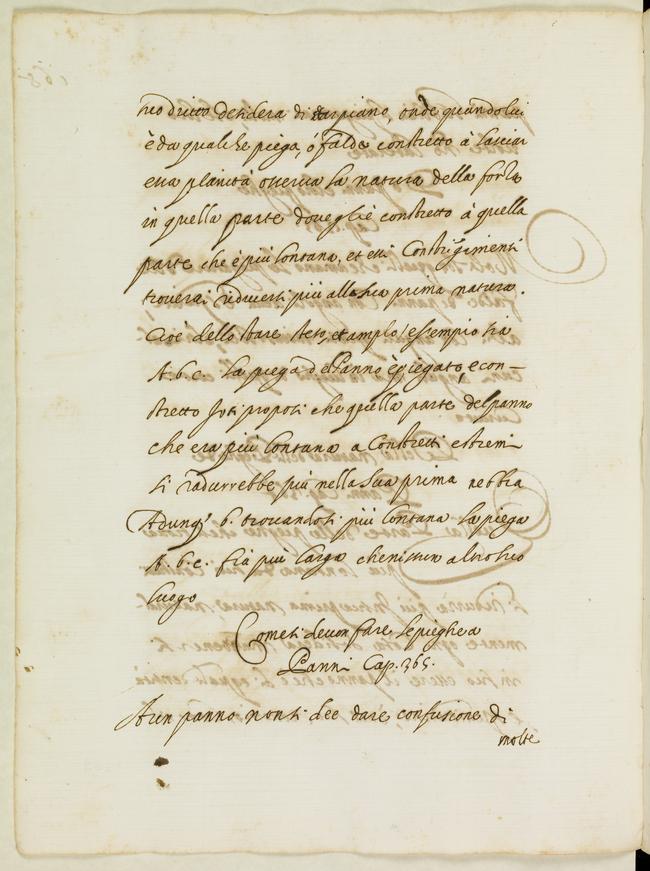 suo dritto desidera di star piano, onde quando lui
è da qualche piega, ò falda constretto à lasciar
essa planità osserva la natura della forza
in quella parte dove gli è constretto à quella
parte che è più lontana, et essi Constrigimenti
troverai ridversi più alla sua prima natura.
Cioè dello stare steso, et amplo / essempio sia
A. b. c. la piega del Panno è piegato, e con-
stretto
che quella parte del panno
che era più lontana a Constretti estremi
si radurrebbe più nella sua prima
Adunq3 b. trovandosi più lontana la piega
A. b. c. fià più larga che nissun altro suo
luogo
Come si devon fare le pieghe a
Panni Cap. 365.
A un panno non si dee dare confusione di
molte